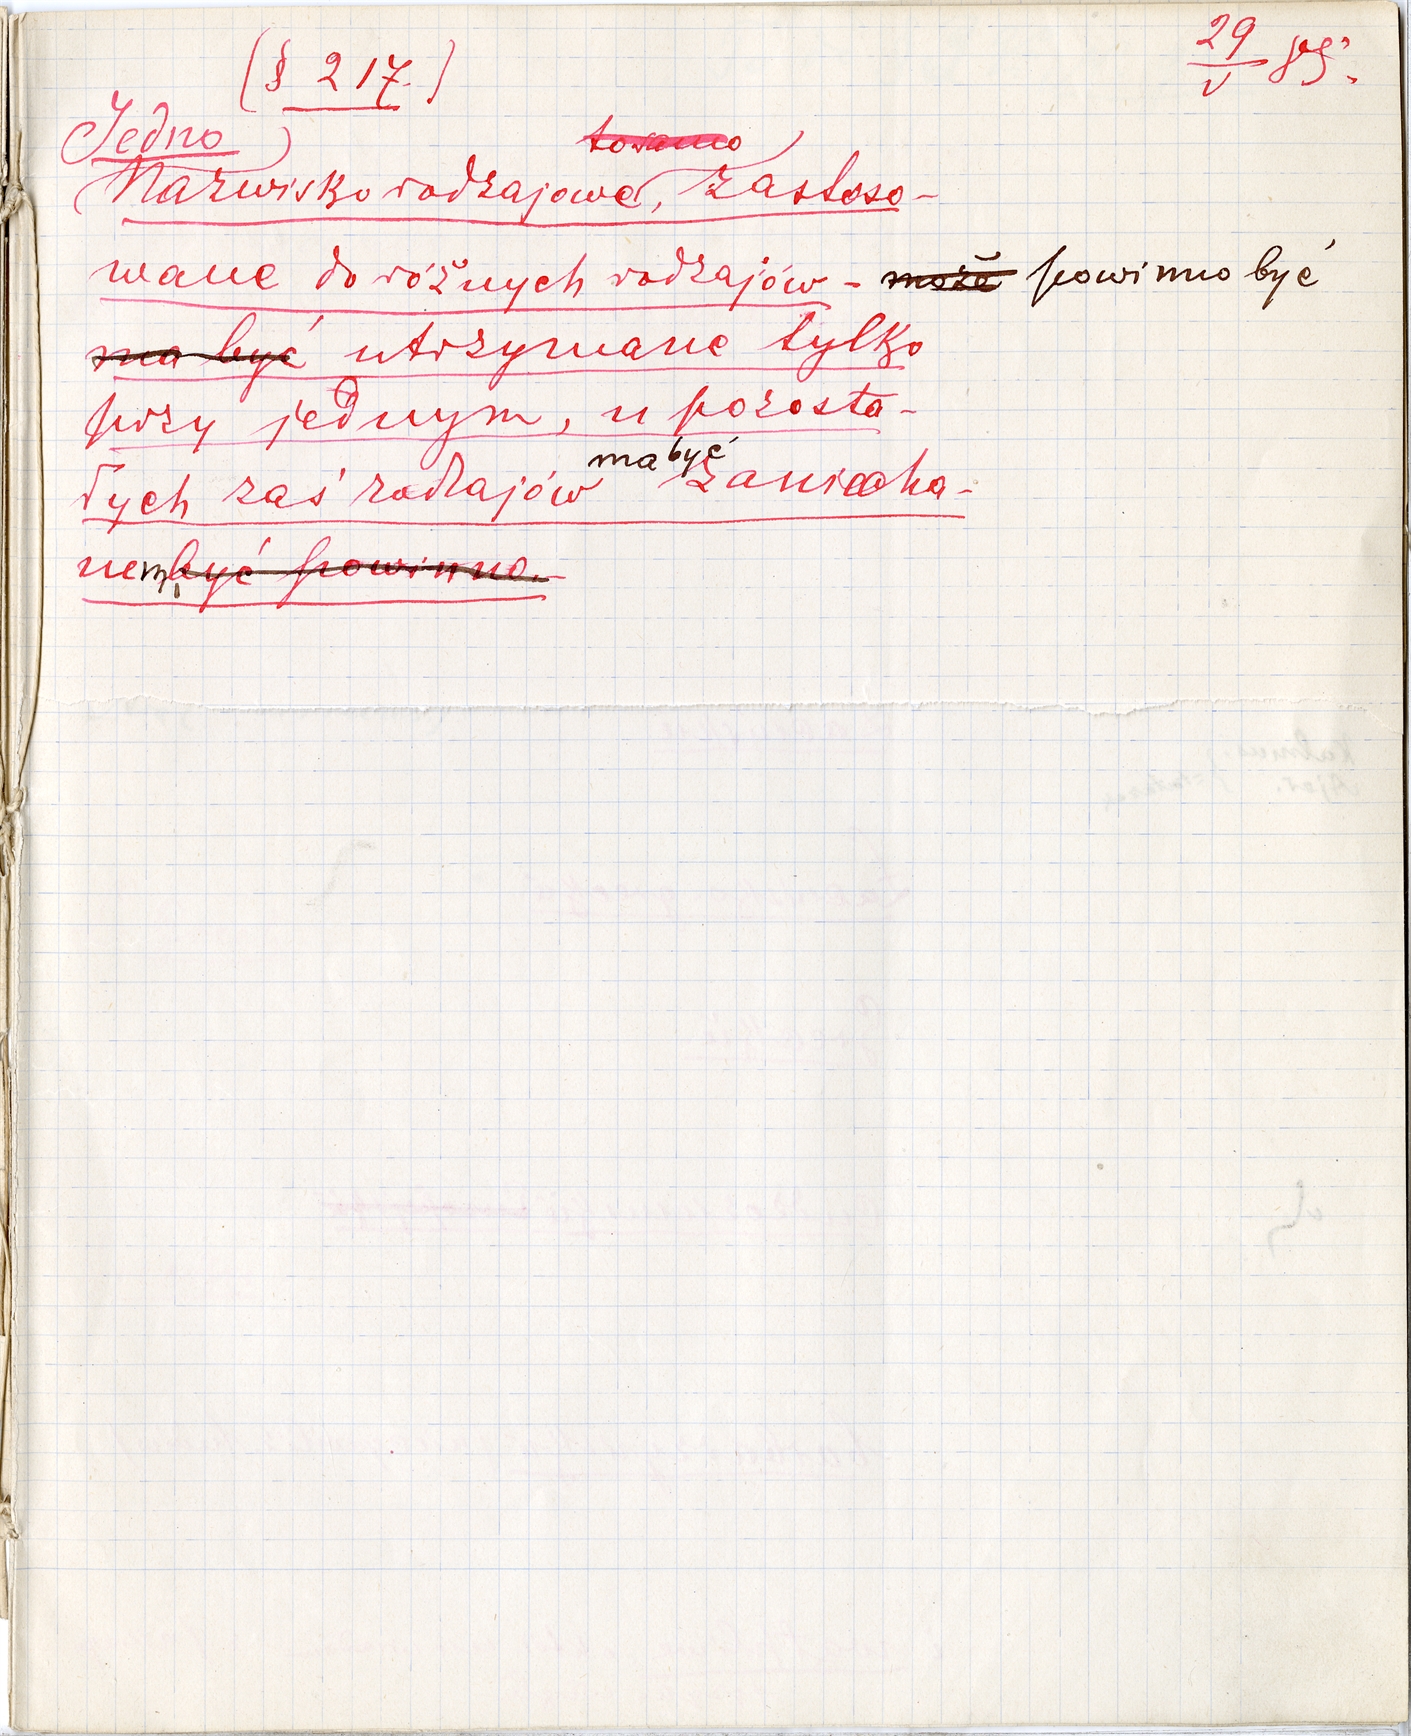 29/V 89.
(§ 217.)
Jedno
to samo
Nazwisko rodzajowe, zastoso-
wane do różnych rodzajów - może powinno być
ma być utrzymane tylko
przy jednym, u pozosta-
łych zaś rodzajów ma być zaniecha-
nem. być powinno.